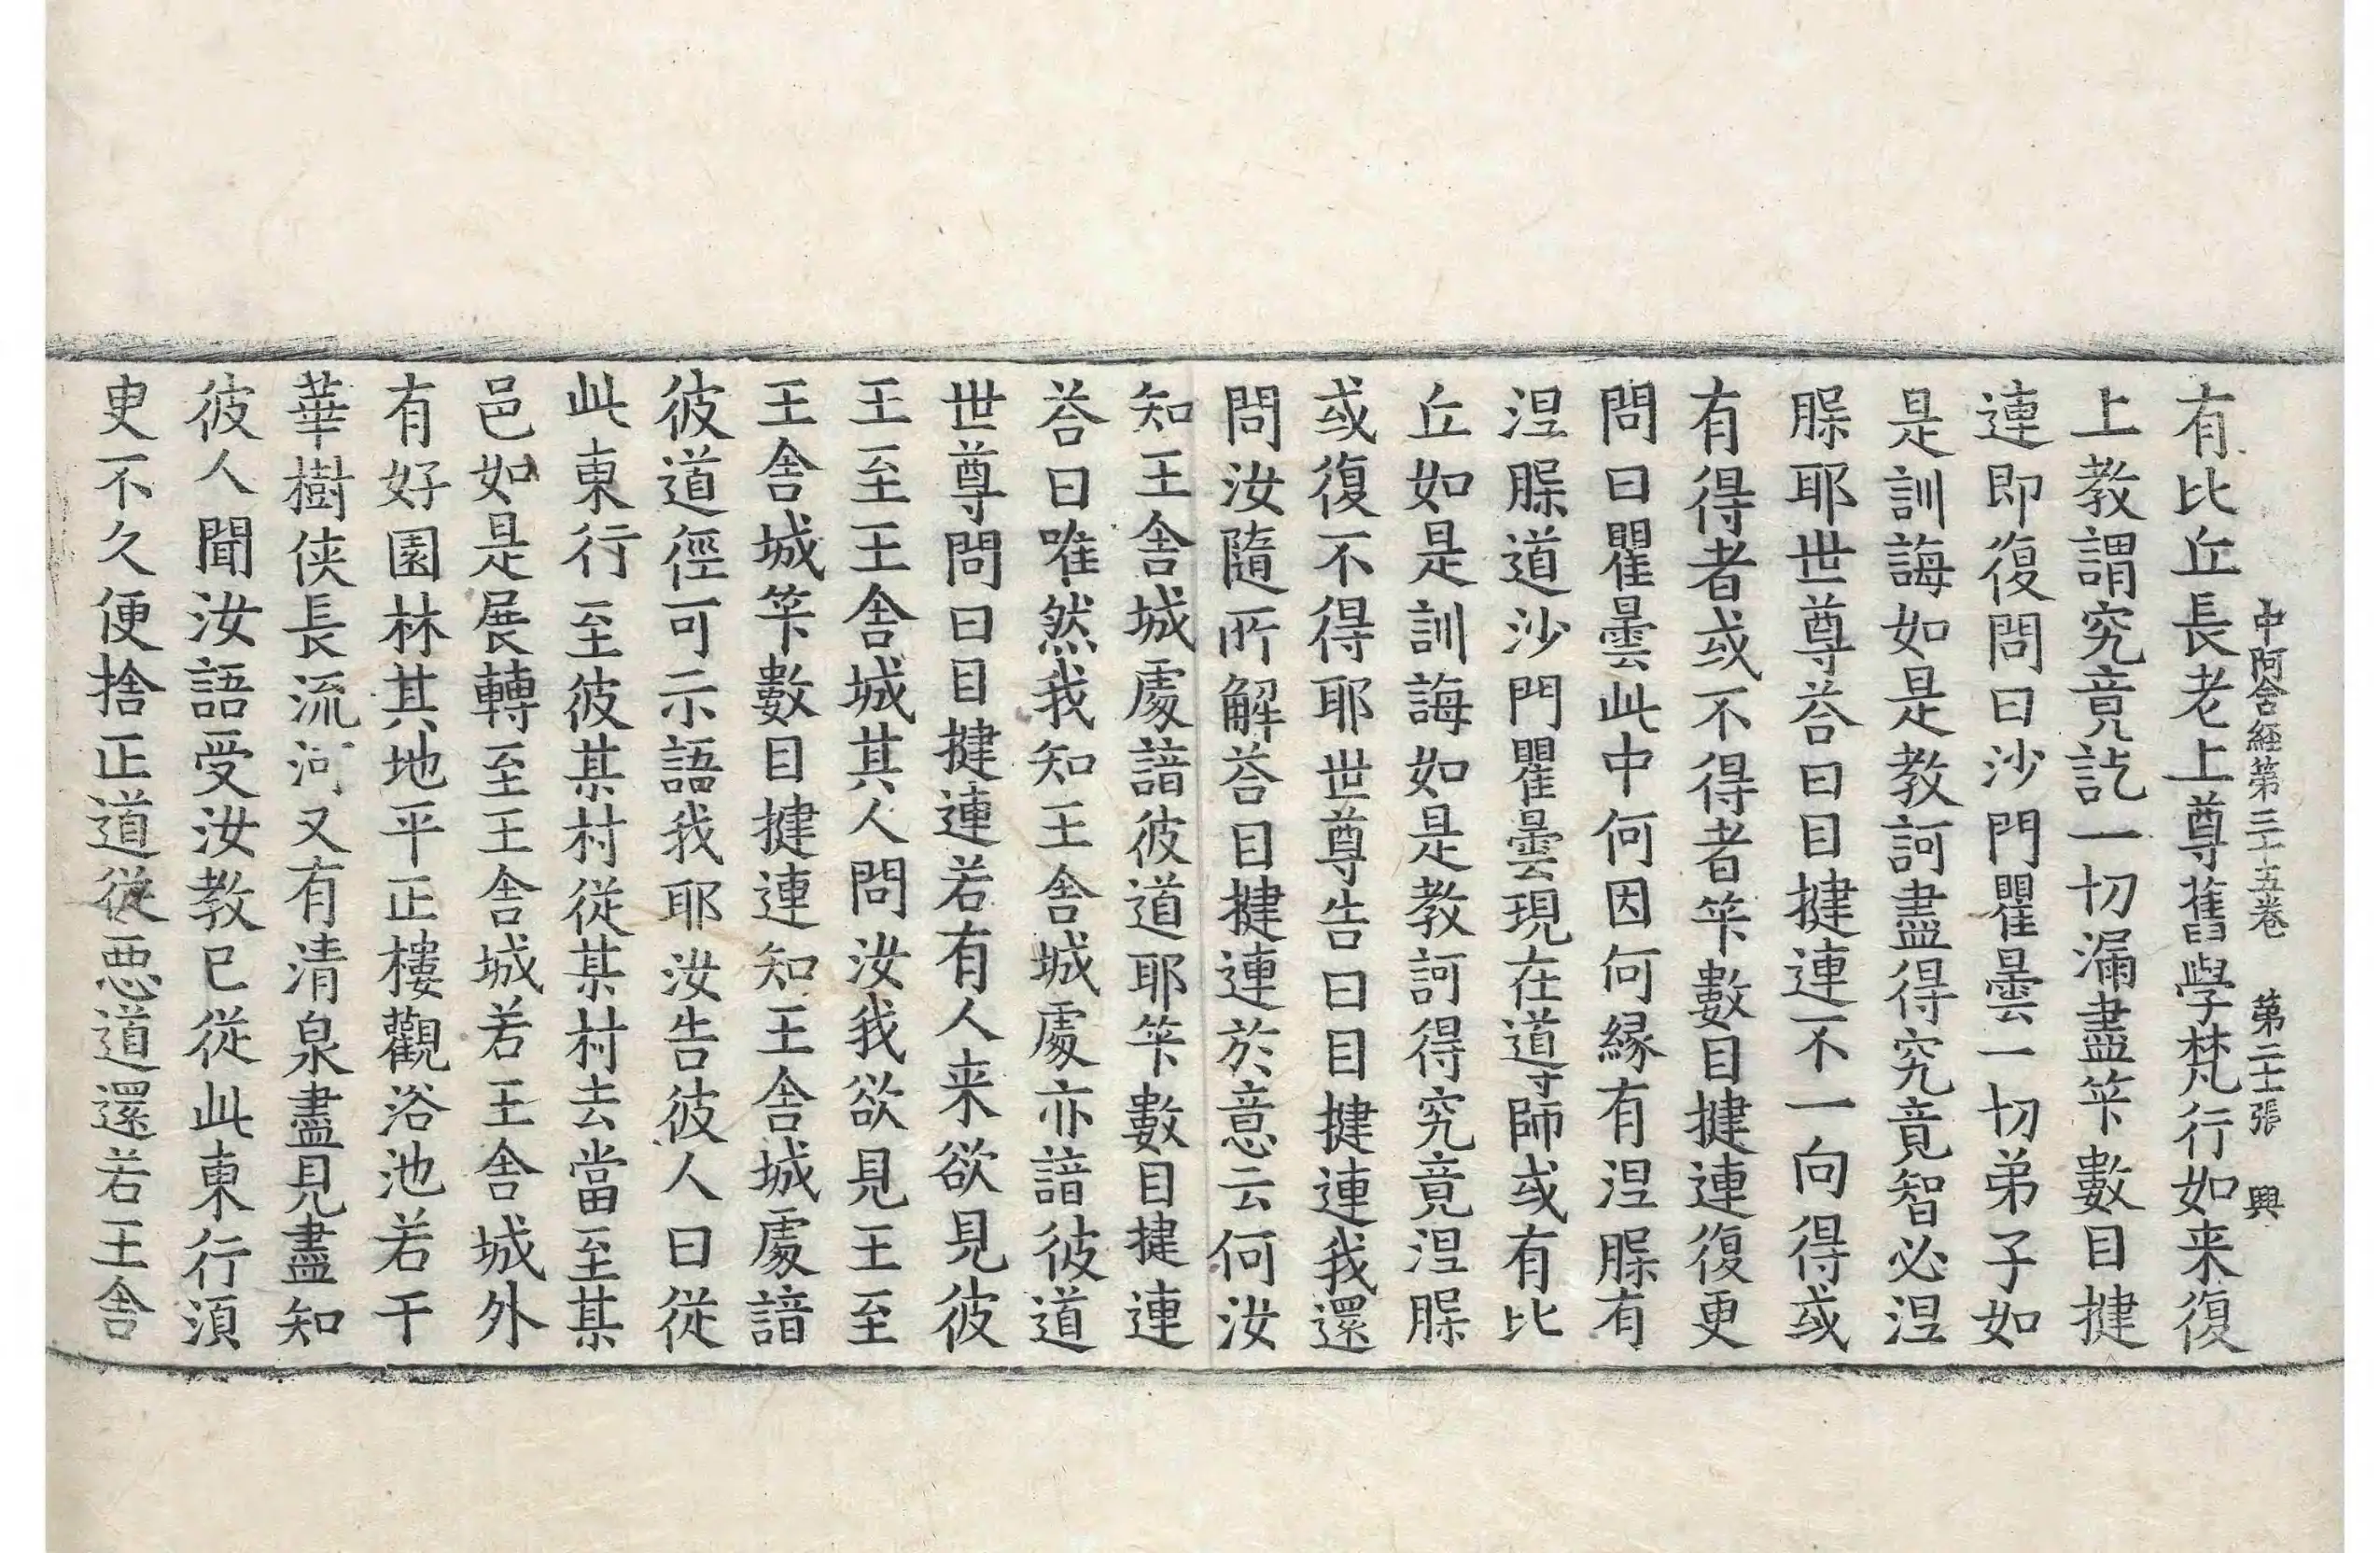 中阿含經第三十五卷 第二十張 興
有比丘長老上尊舊學梵行如来復
上教謂究竟訖一切漏盡筭數目揵
連即復問曰沙門瞿曇一切弟子如
是訓誨如是教訶盡得究竟智必涅
槃耶世尊荅曰目揵連不一向得或
有得者或不得者筭數目揵連復更
問曰瞿曇此中何因何縁有涅槃有
涅槃道沙門瞿曇現在導師或有比
丘如是訓誨如是教訶得究竟涅槃
或復不得耶世尊告曰目揵連我還
問汝隨所解荅目揵連於意云何汝
知王舍城處諳彼道耶筭數目揵連
荅曰唯然我知王舍城處亦諳彼道
世尊問曰目揵連若有人来欲見彼
王至王舍城其人問汝我欲見王至
王舍城筭數目揵連知王舍城處諳
彼道徑可示語我耶汝告彼人曰從
此東行至彼某村從某村去當至某
邑如是展轉至王舍城若王舍城外
有好園林其地平正樓觀浴池若干
華樹俠長流河又有清泉盡見盡知
彼人聞汝語受汝教已從此東行須
臾不久便捨正道從惡道還若王舍